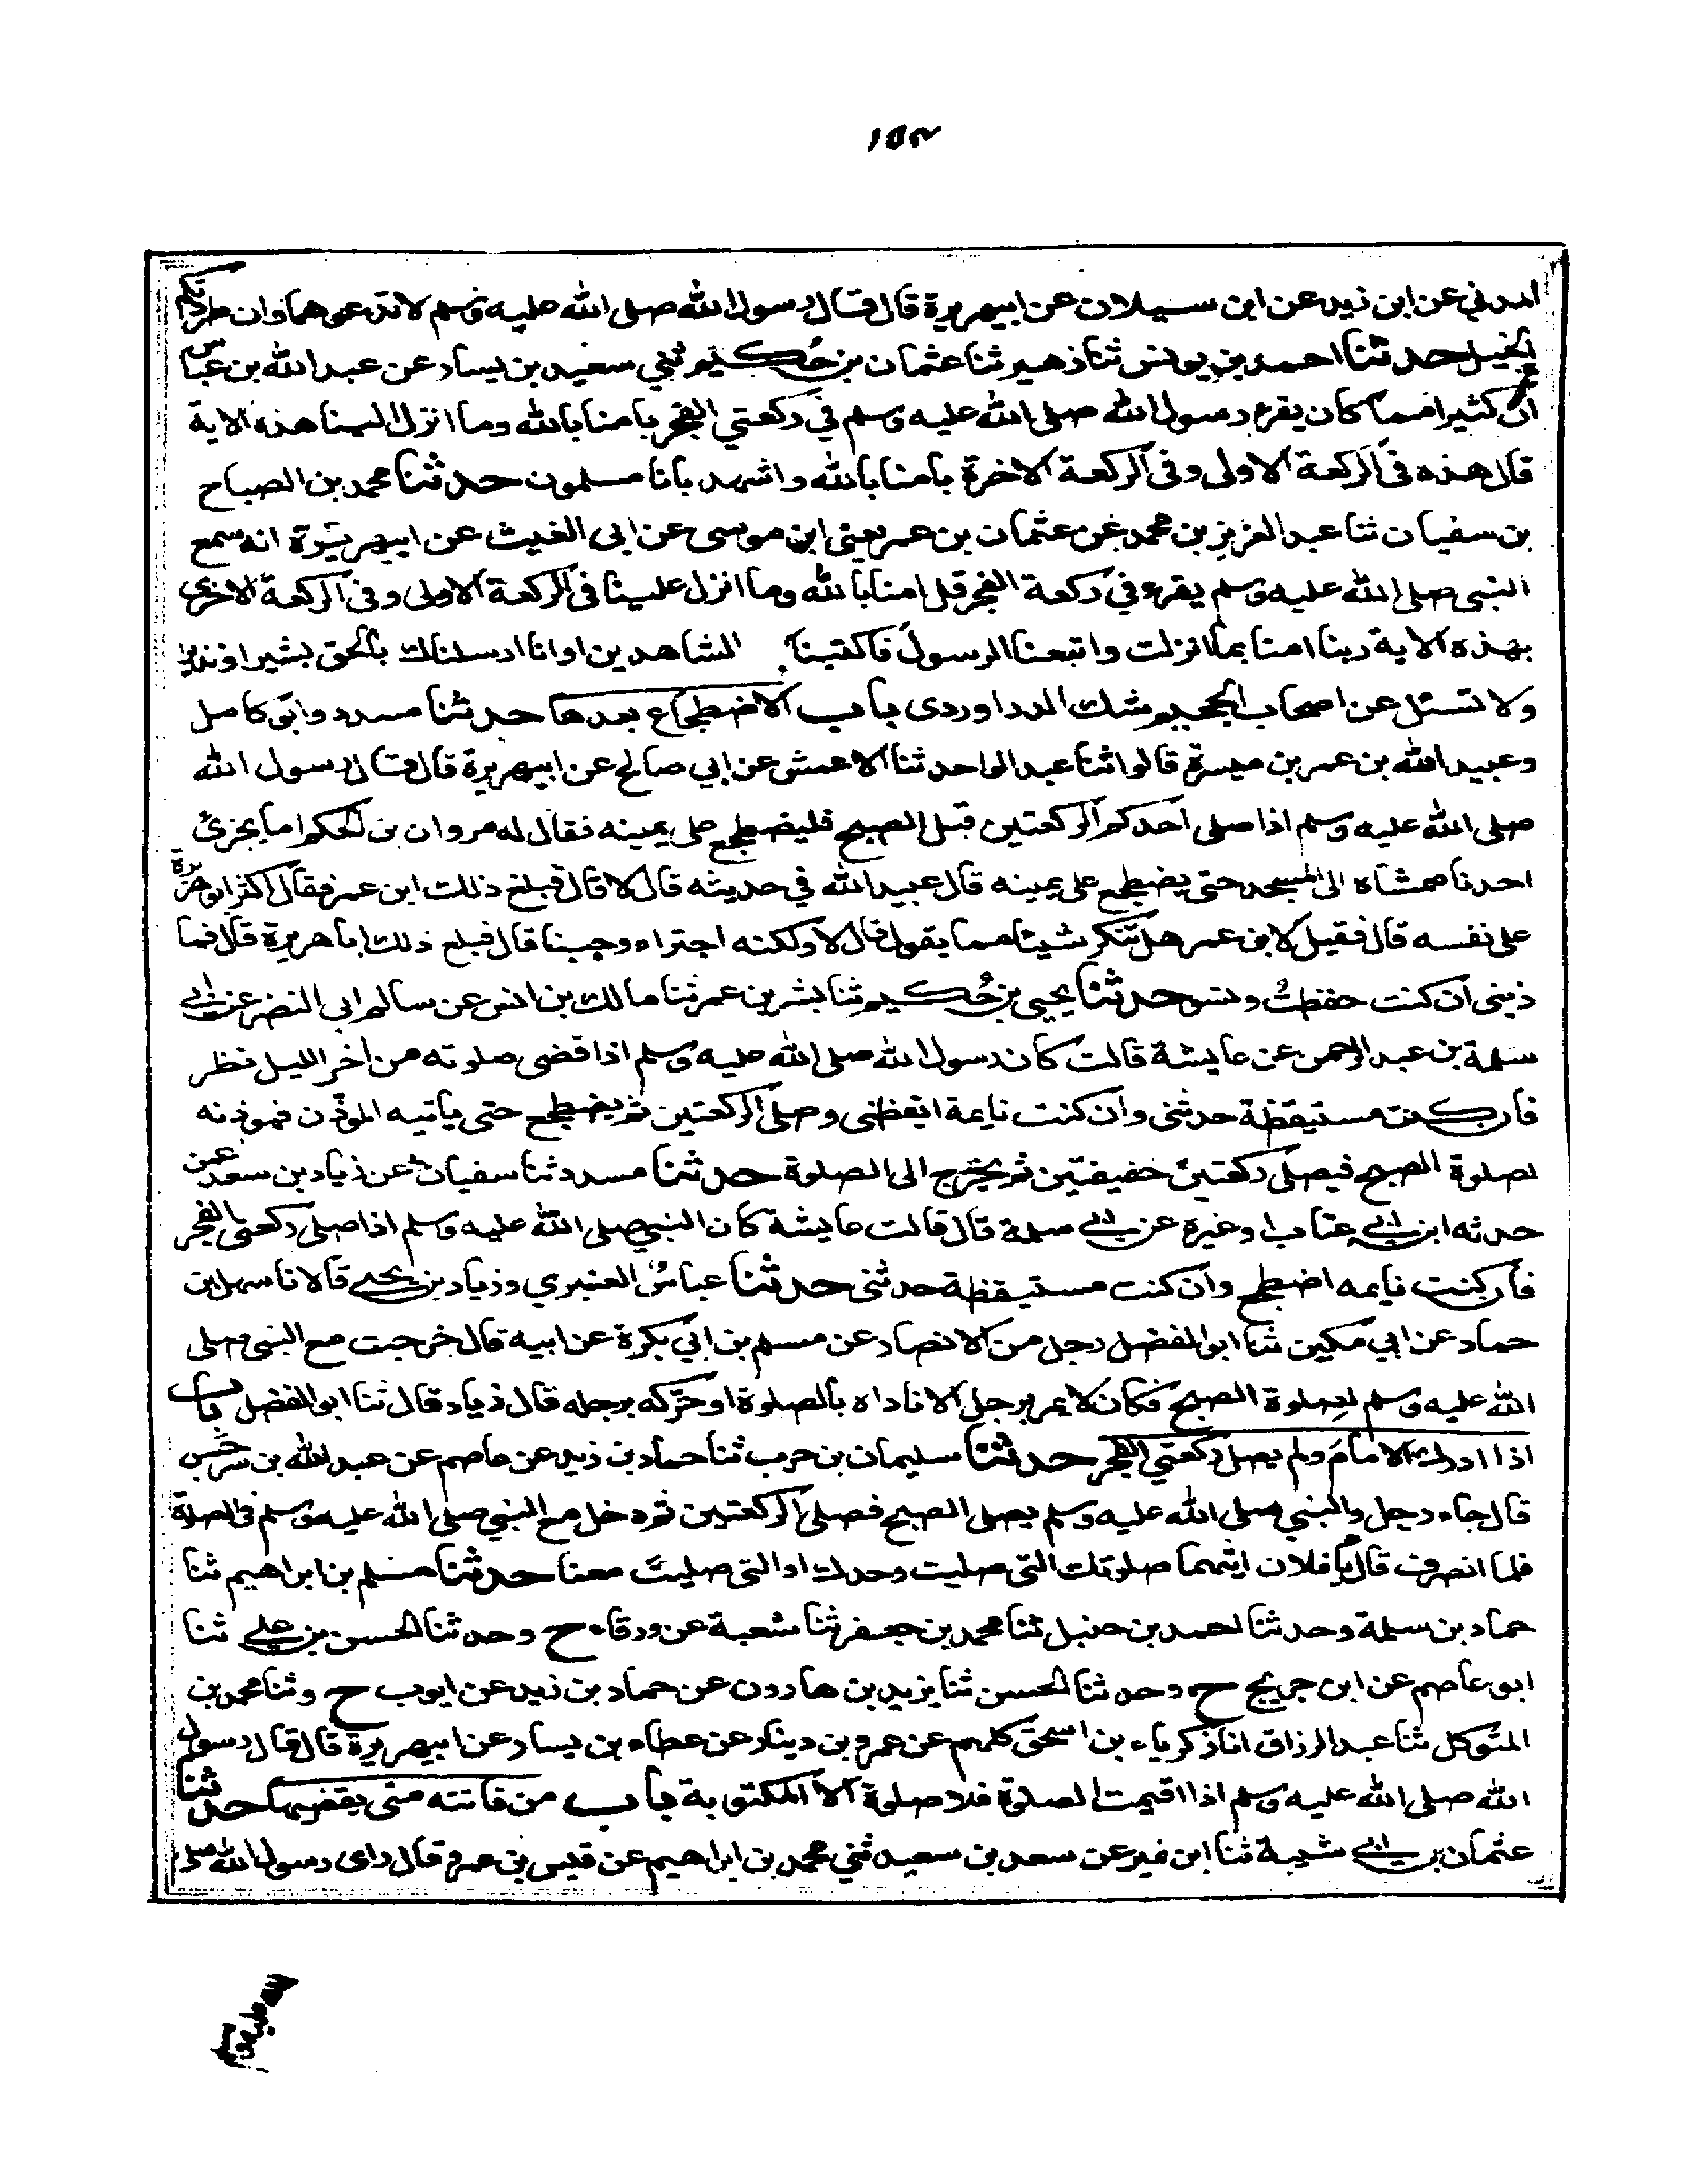 ١٥٣
المدني عن ابن زيد عن ابن سيلان عن ابيهريرة قال قال رسول الله صلى الله عليه وسلم لا تدعوهما وان طردتكم
الخيل حدثنا احمد بن يونس ثنا زهير ثنا عثمان بن حكيم ثني سعيد بن يسار عن عبد الله بن عباس
ان كثيرا مما كان يقرء رسول الله صلى الله عليه وسلم في ركعتي الفجر بامنا بالله وما انزل الينا هذه الاية
قال هذه في الركعة الاولى وفي الركعة الاخرة بامنا بالله واشهد بانا مسلمون حدثنا محمد بن الصباح
بن سفيان ثنا عبد العزيز بن محمد عن عثمان بن عمر يعني ابن موسى عن ابى الغيث عن ابيهريرة انه سمع
النبى صلى الله عليه وسلم يقرء في ركعة الفجر قل امنا بالله وما انزل علينا فى الركعة الاولى وفى الركعة الاخرى
بهذه الاية ربنا امنا بما انزلت واتبعنا الرسول فاكتبنا الشاهدين او انا ارسلناك بالحق بشيرا ونذيرا
ولا تسئل عن اصحاب الجحيم شك الدراوردى باب الاضطجاع بعدها حدثنا مسدد وابو كامل
وعبيد الله بن عمر بن ميسرة قالوا ثنا عبد الواحد ثنا الاعمش عن ابي صالح عن ابيهريرة قال قال رسول الله
صلى الله عليه وسلم اذا صلى احدكم الركعتين قبل الصبح فليضطجع على يمينه فقال له مروان بن الحكم اما يجزئ
احدنا ممشاه الى المسجد حتى يضطجع على يمينه قال عبيد الله في حديثه قال لا قال فبلغ ذلك ابن عمر فقال اكثر ابو هريرة
على نفسه قال فقيل لابن عمر هل تنكر شيئا مما يقول قال لا ولكنه اجتراء وجبنا قال فبلغ ذلك ابا هريرة قال فما
ذنبى ان كنت حفظت ونسو حدثنا يحيى بن حكيم ثنا بشر بن عمر ثنا مالك بن انس عن سالم ابى النضر عن ابي
سلمة بن عبد الرحمن عن عايشة قالت كان رسول الله صلى الله عليه وسلم اذا قضى صلوته من اخر الليل نظر
فان كنت مستيقظة حدثنى وان كنت نايمة ايقظنى وصلى الركعتين ثم يضطجع حتى ياتيه الموذن فيوذنه
لصلوة الصبح فيصلى ركعتين خفيفتين ثم يخرج الى الصلوة حدثنا مسدد ثنا سفيان عن زياد بن سعد عمن
حدثه ابن ابي عتاب او غيره عن ابي سلمة قال قالت عايشة كان النبي صلى الله عليه وسلم اذا صلى ركعتى الفجر
فان كنت نايمه اضطجع وان كنت مستيقظة حدثنى حدثنا عباس العنبري وزياد بن يحيى قالا نا سهل بن
حماد عن ابي مكين ثنا ابو الفضل رجل من الانصار عن مسلم بن ابي بكرة عن ابيه قال خرجت مع النبى صلى
الله عليه وسلم لصلوة الصبح فكان لا يمر برجل الا ناداه بالصلوة او حركه برجله قال زياد قال ثنا ابو الفضل باب
اذا ادرك الامام ولم يصل ركعتي الفجر حدثنا سليمان بن حرب ثنا حماد بن زيد عن عاصم عن عبد الله بن سرجس
قال جاء رجل والنبي صلى الله عليه وسلم يصلى الصبح فصلى الركعتين ثم دخل مع النبي صلى الله عليه وسلم في الصلوة
فلما انصرف قال يا فلان ايتهما صلوتك التى صليت وحدك او التى صليت معنا حدثنا مسلم بن ابراهيم ثنا
حماد بن سلمة وحدثنا احمد بن حنبل ثنا محمد بن جعفر ثنا شعبة عن ورقاء ح وحدثنا الحسن بن علي ثنا
ابو عاصم عن ابن جريج ح وحدثنا الحسن ثنا يزيد بن هارون عن حماد بن زيد عن ايوب ح وثنا محمد بن
المتوكل ثنا عبد الرزاق انا زكرياء بن اسحق كلهم عن عمرو بن دينار عن عطاء بن يسار عن ابيهريرة قال قال رسول
الله صلى الله عليه وسلم اذا اقيمت الصلوة فلا صلوة الا المكتوبة باب من فاتته متى يقضيها حدثنا
عثمان بن ابي شيبة ثنا ابن نمير عن سعد بن سعيد ثني محمد بن ابراهيم عن قيس بن عمرو قال راى رسول الله صلى
الله عليه وسلم